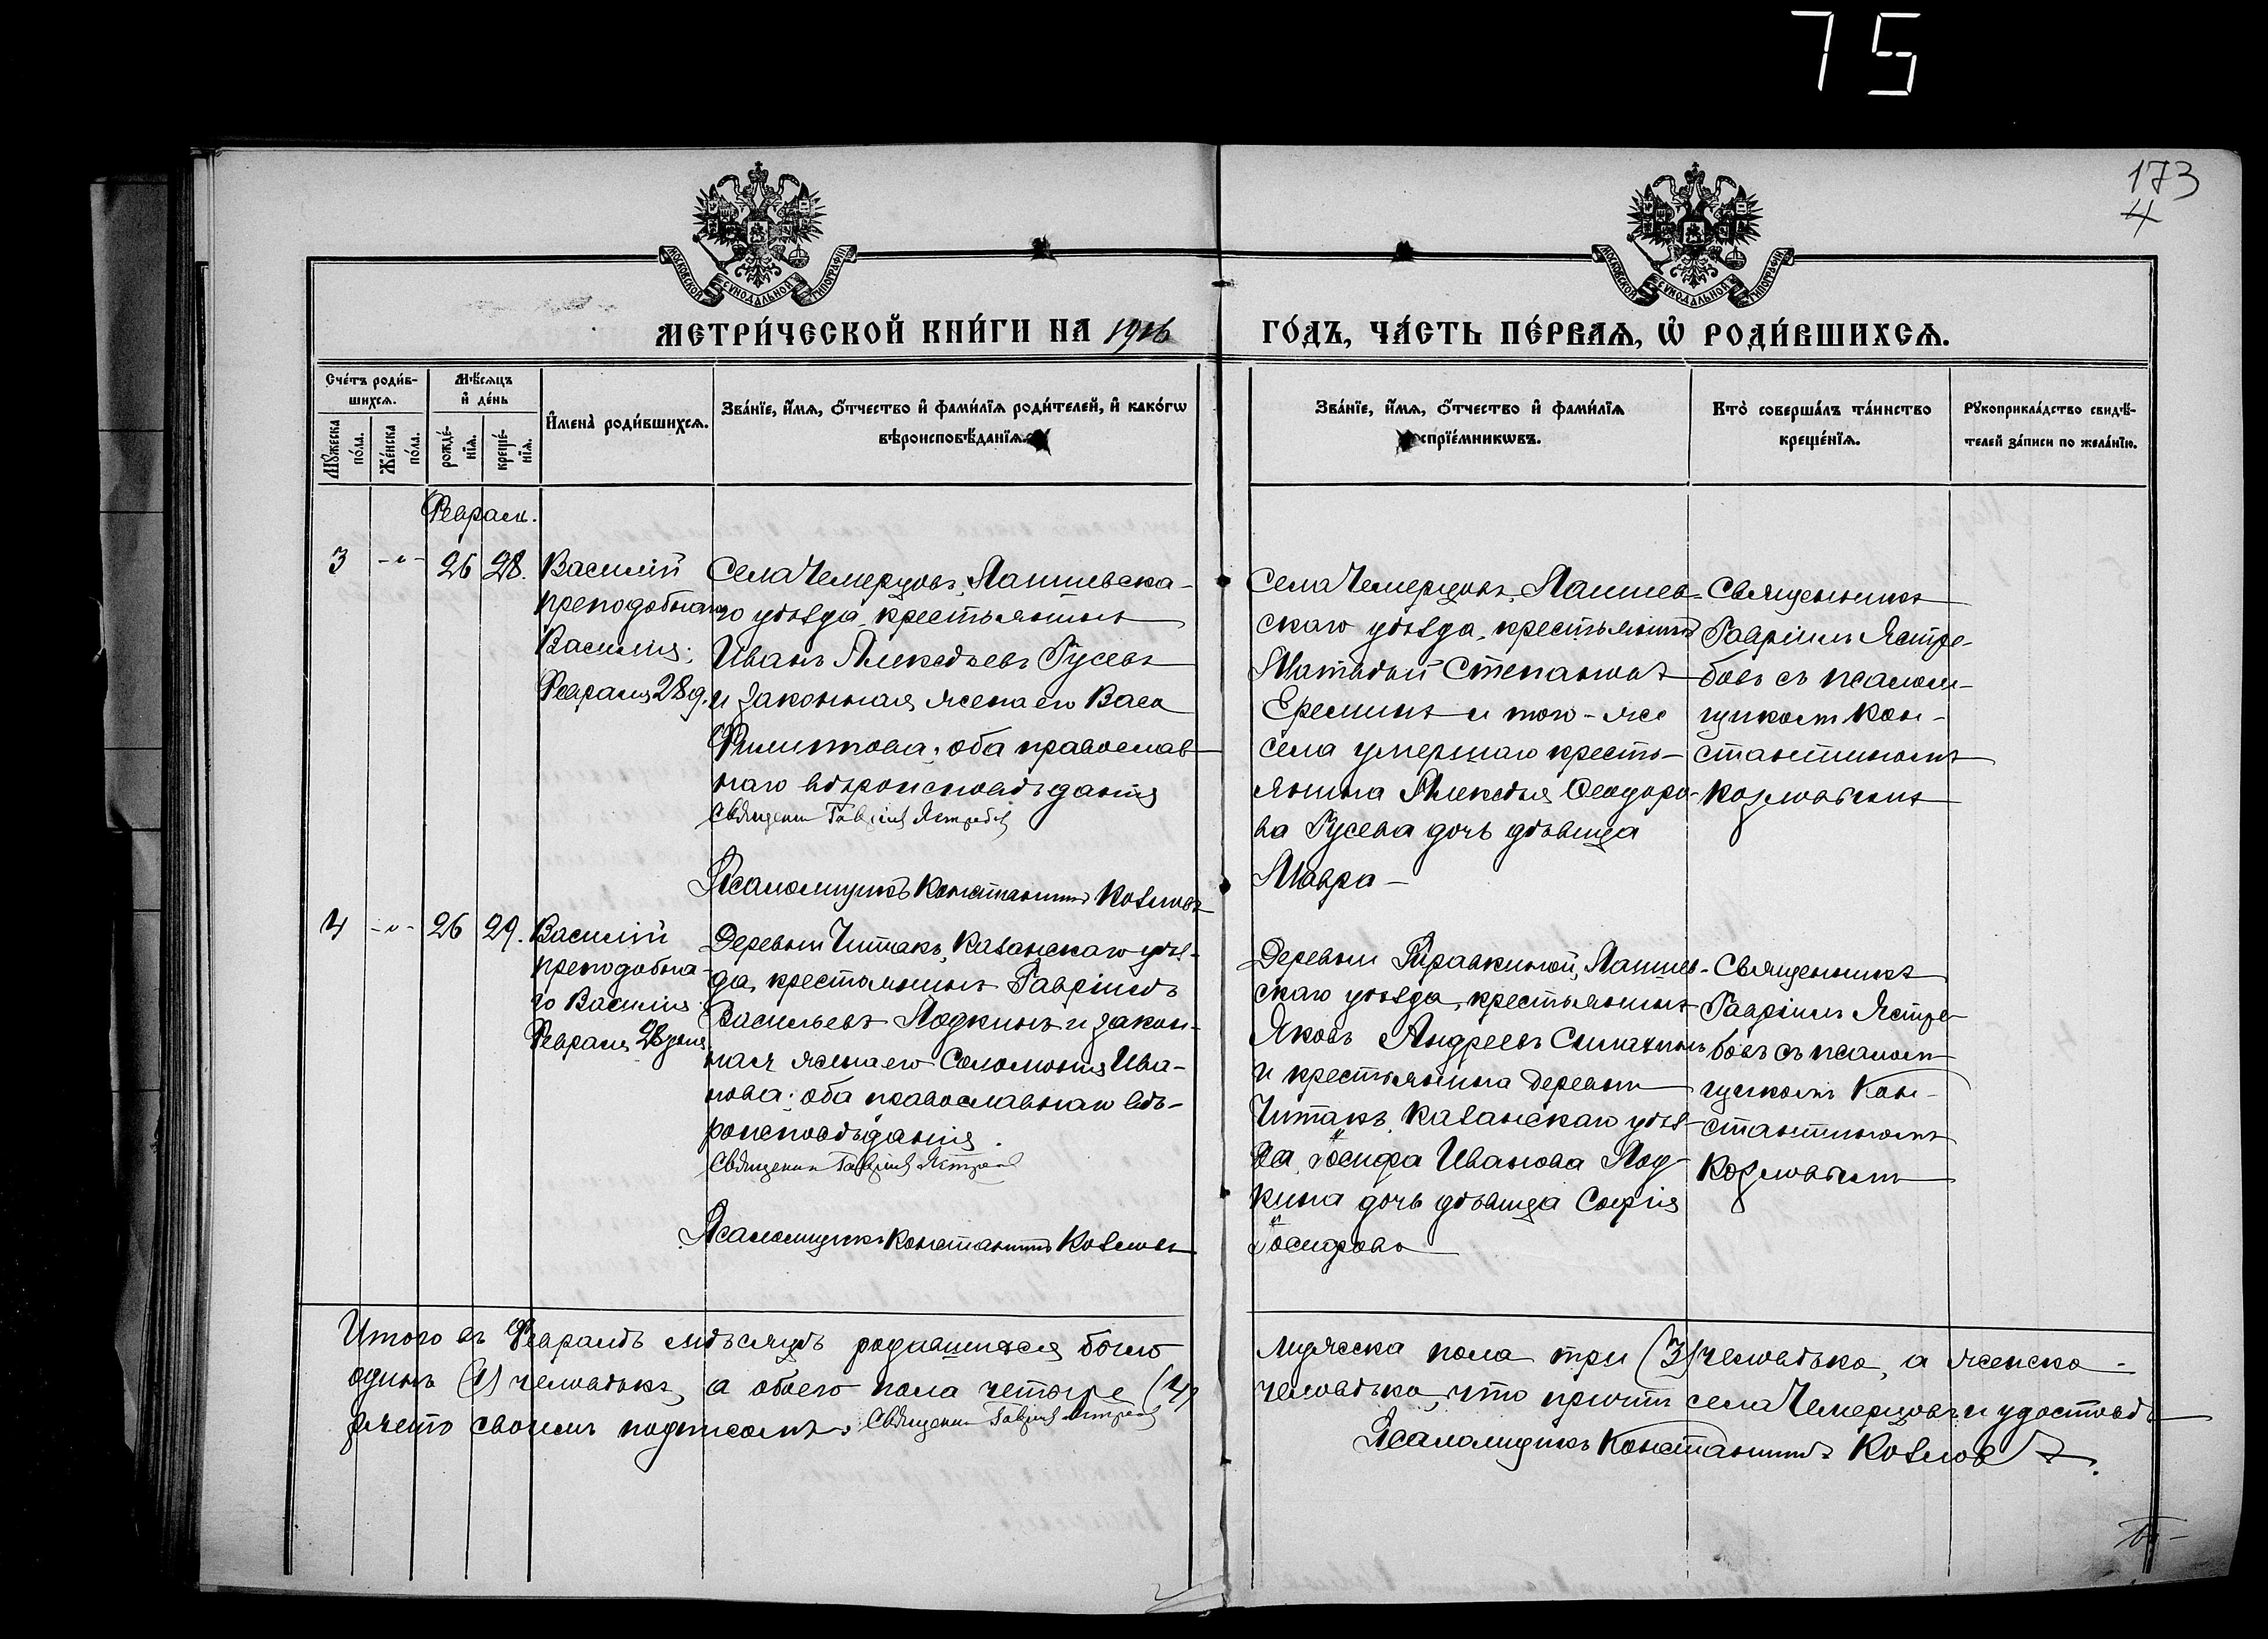 75
173
4
МОСКОВСКОЙ СѴНОДАЛЬНОЙ ТИПОГРАФІИ
МОСКОВСКОЙ СѴНОДАЛЬНОЙ ТИПОГРАФІИ
МЕТРИ́ЧЕСКОЙ КНИ́ГИ НА 1916 ГО́ДЪ, ЧА́СТЬ ПЕ́РВАѦ, Ѡ҆ РОДИ́ВШИХСѦ.
Сче́тъ роди́в-
шихсѧ.
Мѣ́сѧцъ
и҆ де́нь
Мꙋ́жеска
по́ла.
Же́нска
по́ла.
рожде́-
нїѧ.
креще́-
нїѧ.
И҆мена̀ роди́вшихсѧ.
Зва́нїе, и҆́мѧ, ѻ҆́тчество и҆ фами́лїѧ роди́телей, и҆ како́гѡ
вѣроисповѣ́данїѧ.
Зва́нїе, и҆́мѧ, ѻ҆́тчество и҆ фами́лїѧ
воспрїе́мникѡвъ.
Кто̀ соверша́лъ та́инство
креще́нїѧ.
Рꙋкоприкла́дство свидѣ́-
телей за́писи по жела́нїю.
Февраль.
3 -"- 26 28.
Василій
преподобнаго
Василія;
Февраля 28 д.
Села Чемерцовъ, Лаишевска-
го уѣзда, крестьянинъ
Иванъ Алексѣевъ Гусевъ
и законная жена его Васа
Филиппова; оба православ-
наго вѣроисповѣданія
Священникъ Гавріилъ Ястребовъ
Псаломщикъ Константинъ Козловъ
Села Чемерцовъ, Лаишев-
скаго уѣзда, крестьянинъ
Матвѣй Степановъ
Ереминъ и того-же
села умершаго кресть-
янина Алексѣя Ѳеодоро-
ва Гусева дочь дѣвица
Мавра -
Священникъ
Гавріилъ Ястре-
бовъ съ псалом-
щикомъ Кон-
стантиномъ
Козловымъ
4 -"- 26 29.
Василій
преподобна-
го Василія
Февраля 28 дня
Деревни Читакъ, Казанскаго уѣз-
да, крестьянинъ Гавріилъ
Васильевъ Лодкинъ и закон-
ная жена его Соломонія Ива-
нова; оба православнаго вѣ-
роисповѣданія.
Священникъ Гавріилъ Ястребовъ
Псаломщикъ Константинъ Козловъ
Деревни Травкиной, Лаишев-
скаго уѣзда, крестьянинъ
Яковъ Андреевъ
и крестьянина деревни
Читакъ, Казанскаго уѣз-
да, Іосифа Иванова Лод-
кина дочь дѣвица Софія
Іосифова
Священникъ
Гавріилъ Ястре-
бовъ съ псалом-
щикомъ Кон-
стантиномъ
Козловымъ
Итого въ Февралѣ мѣсяцѣ родившихся было мужеска пола три (3) человѣка, а женска -
одинъ (1) человѣкъ, а обоего пола четыре (4) человѣка, что причтъ села Чемерцовъ и удостовѣ-
ряетъ своимъ подписомъ. Священникъ Гавріилъ Ястребовъ
Псаломщикъ Константинъ Козловъ.